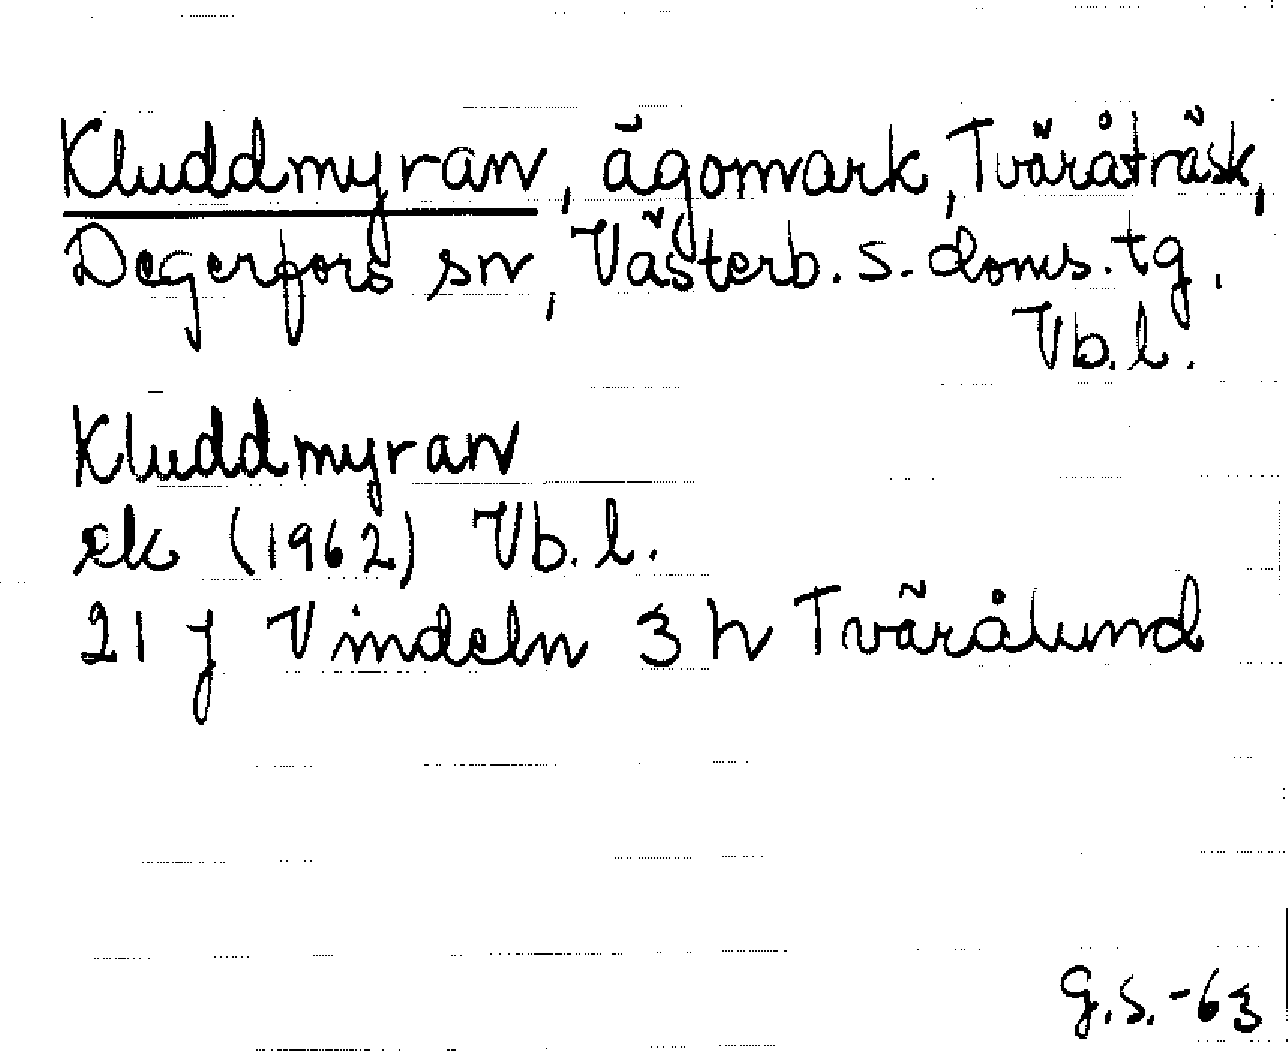 Kluddmyran, ägomark, Tväråträsk,
Degerfors sn, Västerb. s. doms. tg.
Vb. l.
Kluddmyran
ek (1962) Vb. l.
21 J Vindeln 3 h Tvärålund
G.S.-63